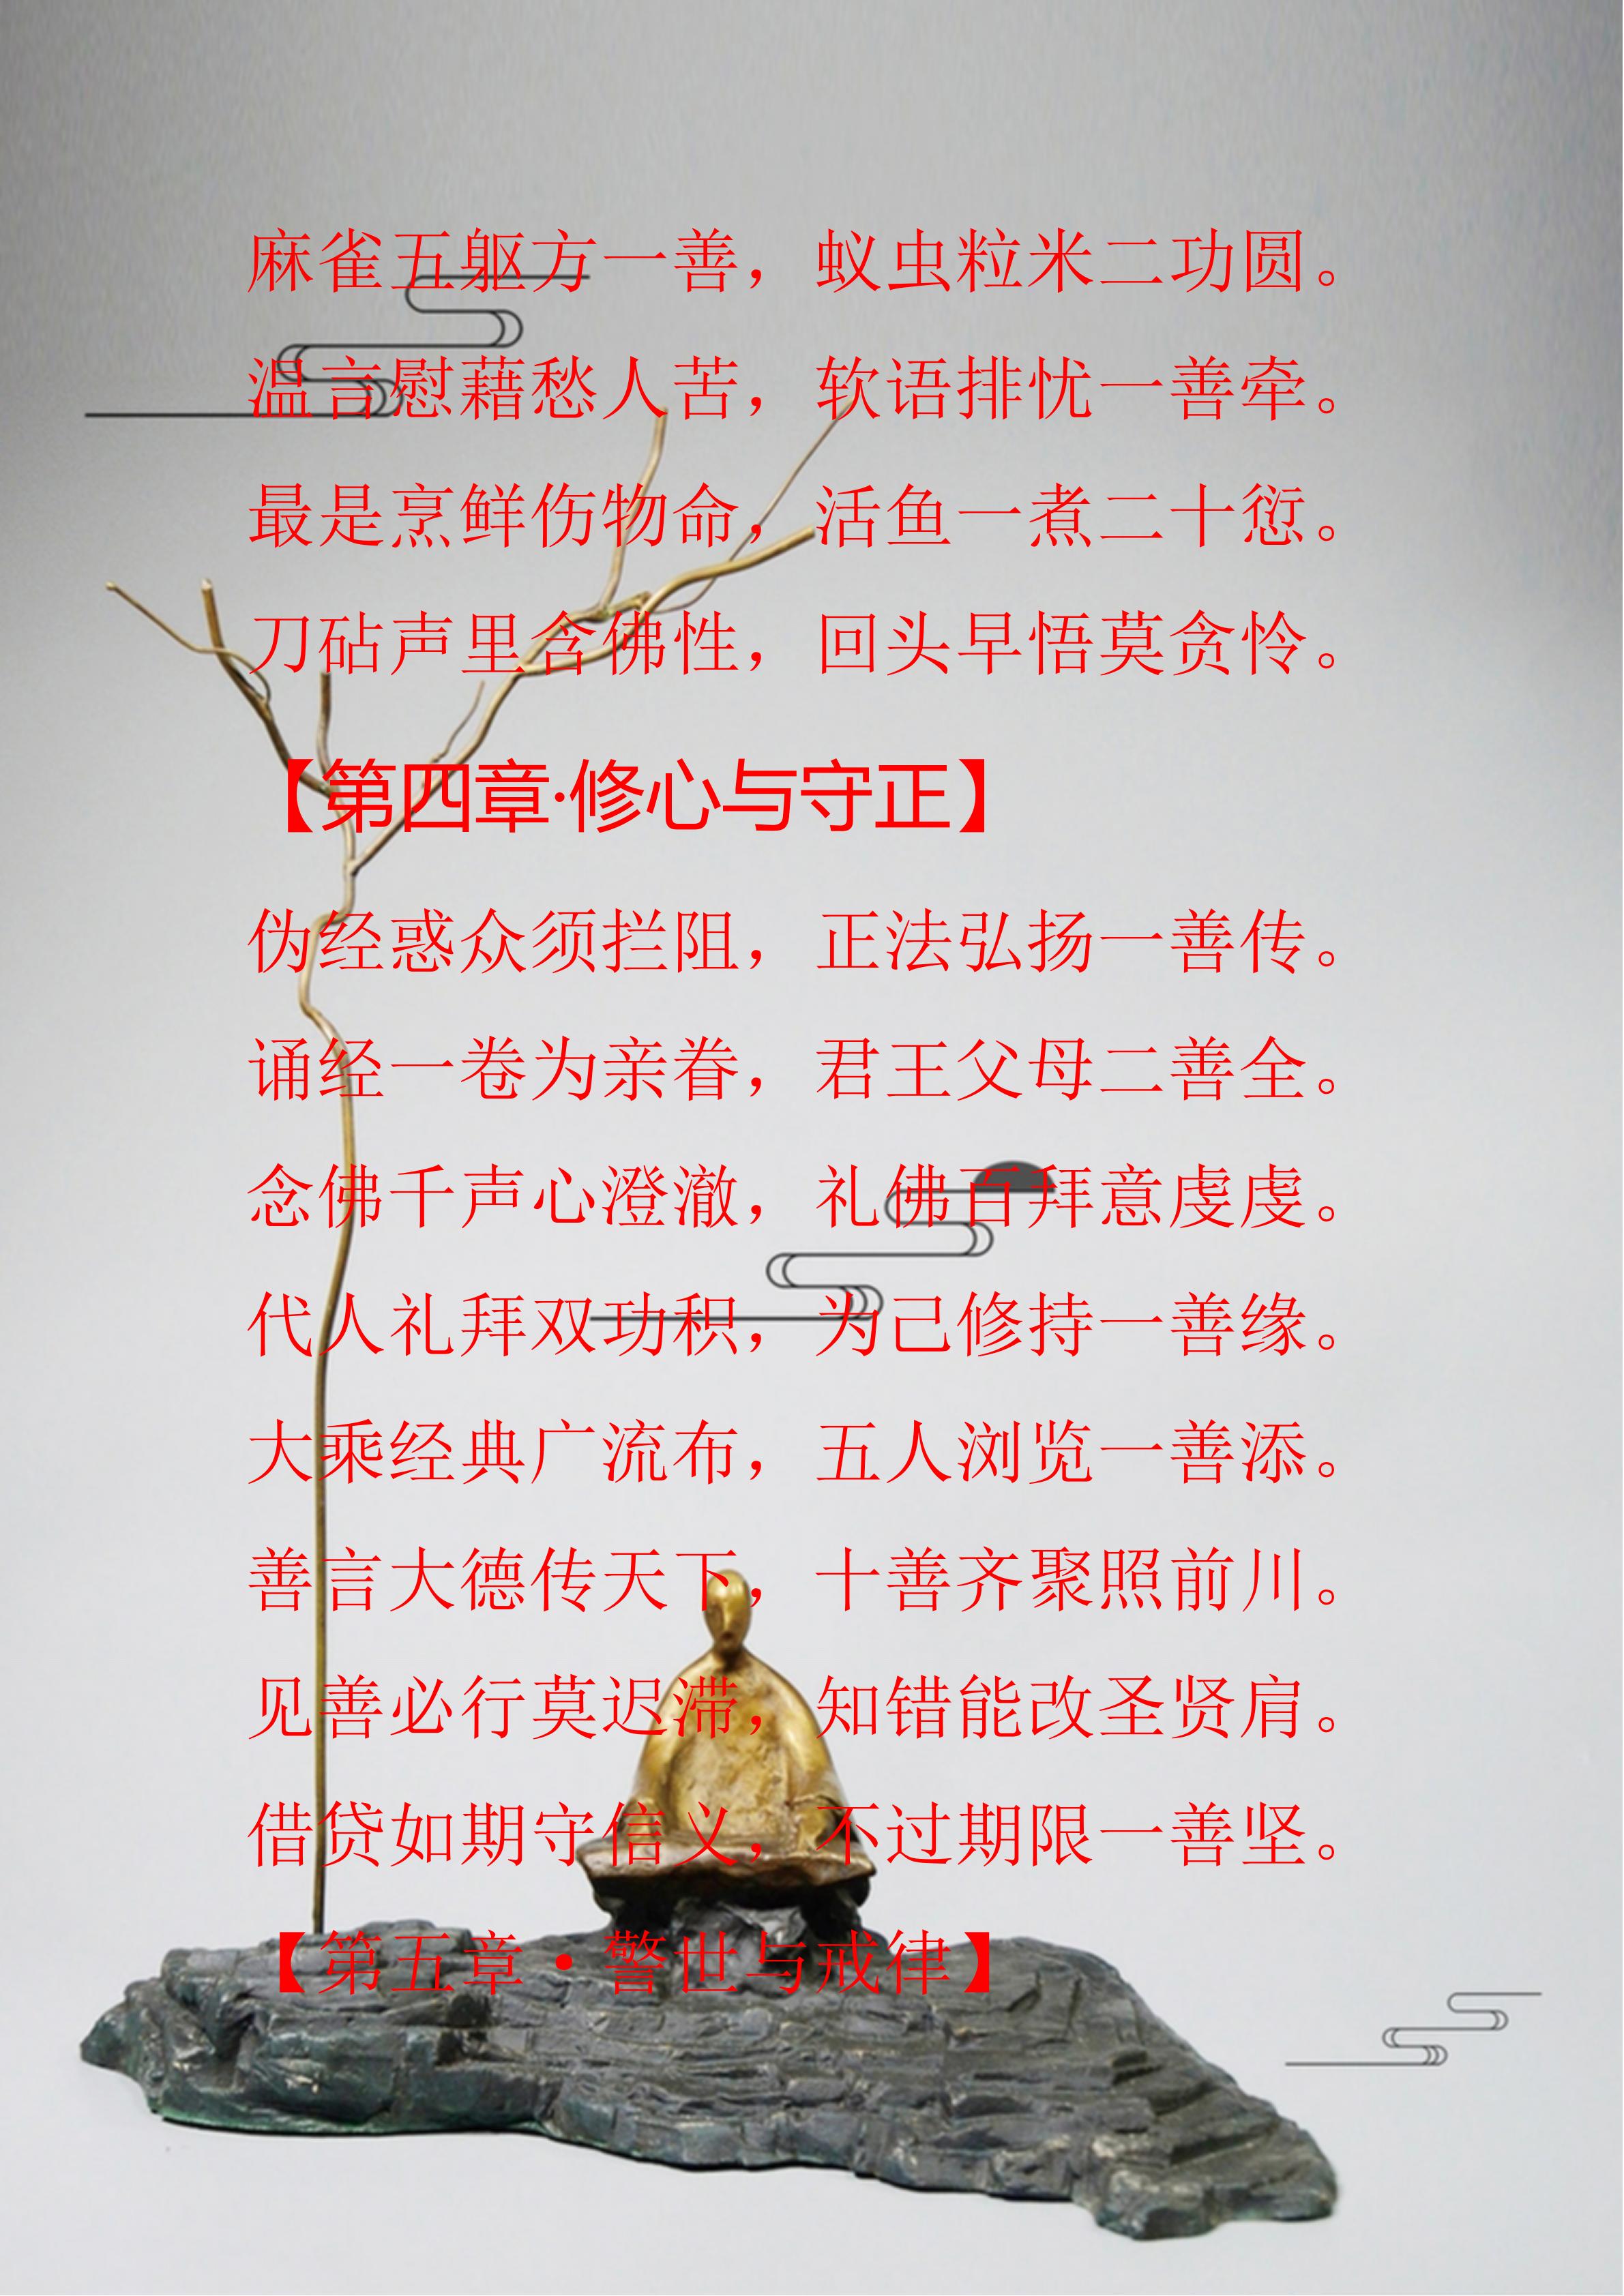 麻雀五躯方一善，蚁虫粒米二功圆。
温言慰藉愁人苦，软语排忧一善牵。
最是烹鲜伤物命，活鱼一煮二十愆。
刀砧声里含佛性，回头早悟莫贪怜。
【第四章·修心与守正】
伪经惑众须拦阻，正法弘扬一善传。
诵经一卷为亲眷，君王父母二善全。
念佛千声心澄澈，礼佛百拜意虔虔。
代人礼拜双功积，为己修持一善缘。
大乘经典广流布，五人浏览一善添。
善言大德传天下，十善齐聚照前川。
见善必行莫迟滞，知错能改圣贤肩。
借贷如期守信义，不过期限一善坚。
【第五章·警世与戒律】